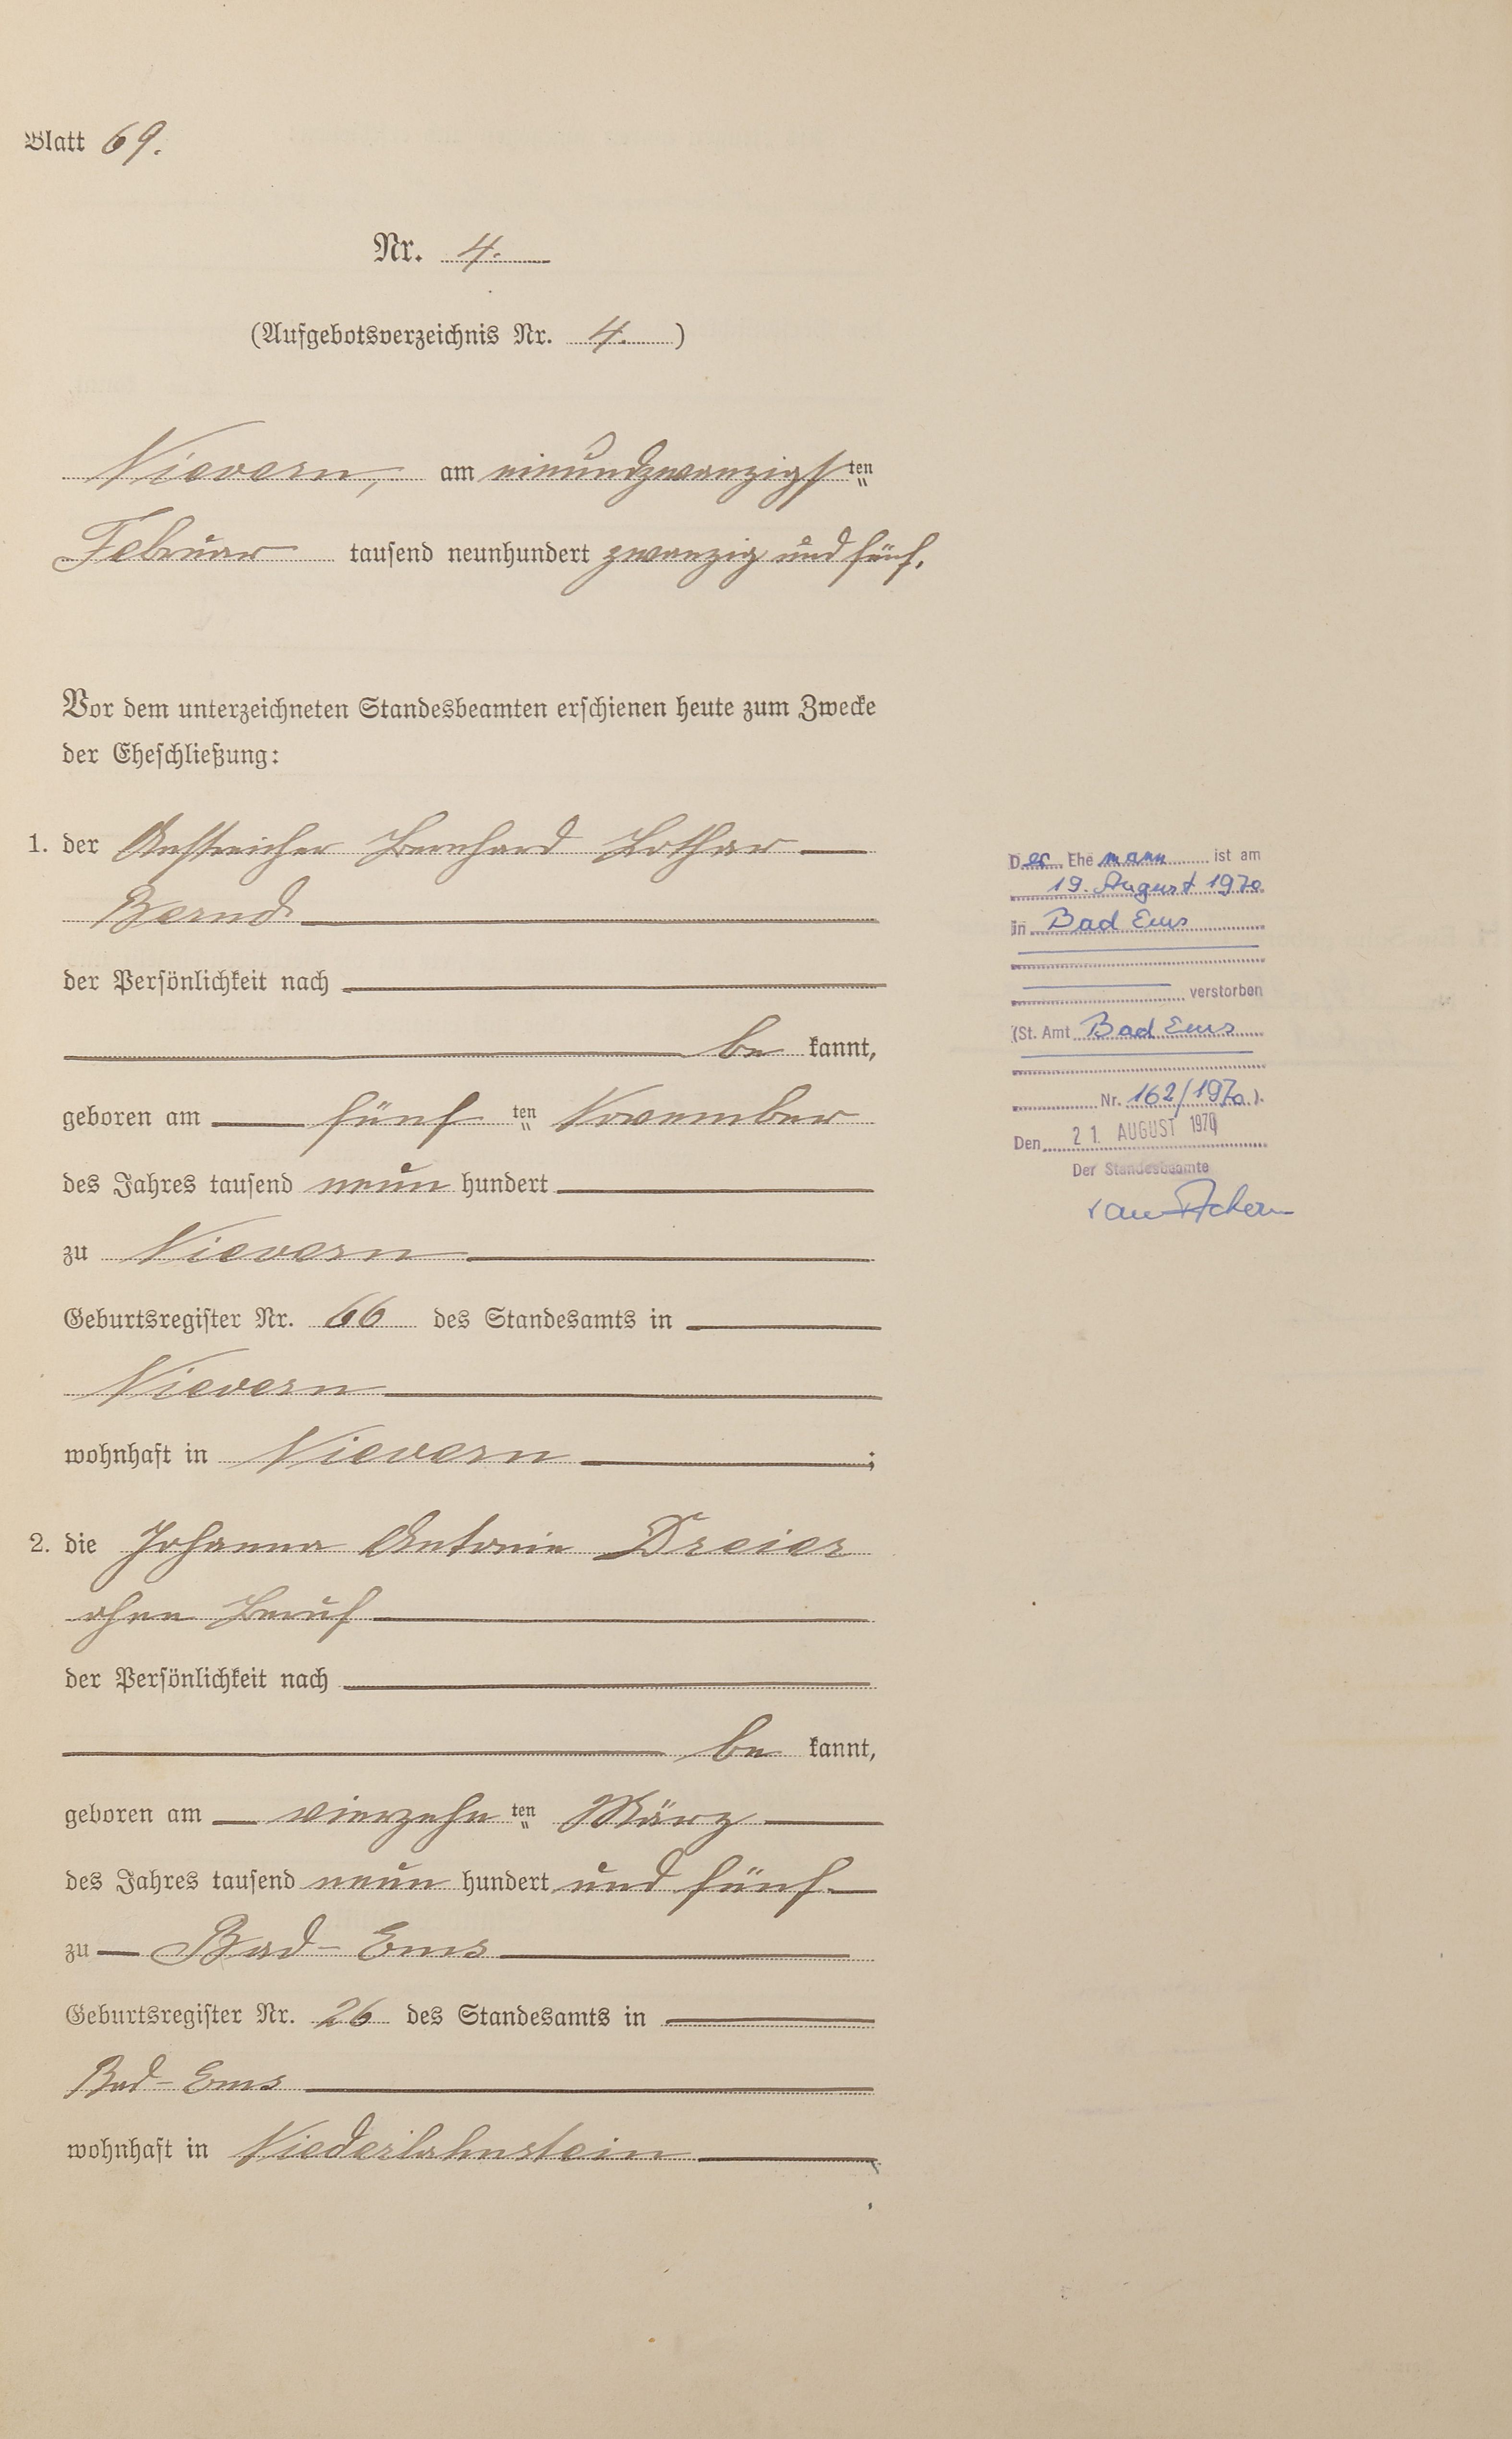 Blatt 69.
Nr. 4.
(Aufgebotsverzeichnis Nr. 4.)
Nievern, am einundzwanzigsten
Februar tausend neunhundert zwanzig und fünf.
Vor dem unterzeichneten Standesbeamten erschienen heute zum Zwecke
der Eheschließung:
1. der Anstreicher Bernhard Lothar
Bernd
der Persönlichkeit nach
be kannt,
geboren am fünf ten November
des Jahres tausend neun hundert
zu Nievern
Geburtsregister Nr. 66 des Standesamts in
Nievern
wohnhaft in Nievern ;
2. die Johanna Antonie Dreier
ohne Beruf
der Persönlichkeit nach
be kannt,
geboren am vierzehn ten März
des Jahres tausend neun hundert und fünf
zu Bad-Ems
Geburtsregister Nr. 26 des Standesamts in
Bad-Ems
wohnhaft in Niederlahnstein
Der Ehemann ist am
19. August 1970
in Bad Ems
verstorben
(St. Amt Bad Ems
Nr. 162/1970).
Den 21. AUGUST 1970
Der Standesbeamte